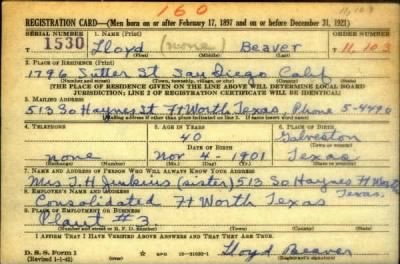 160
REGISTRATION CARD—(Men born on or after February 17, 1897 and on or before December 31, 1921)
11,103
SERIAL NUMBER 1. NAME (Print) ORDER NUMBER
T 1530 Lloyd (none) Beaver T 11,103
2. PLACE OF RESIDENCE (Print)
1796 Sutter St San Diego Calif
[THE PLACE OF RESIDENCE GIVEN ON THE LINE ABOVE WILL DETERMINE LOCAL BOARD
JURISDICTION; LINE 2 OF REGISTRATION CERTIFICATE WILL BE IDENTICAL]
3. MAILING ADDRESS
513 So Haynes St Ft Worth Texas. Phone 5-4490
[Mailing address if other than place indicated on line 2. If same insert word same]
4. TELEPHONE 5. AGE IN YEARS 6. PLACE OF BIRTH
40 Galveston
DATE OF BIRTH
none Nov 4 - 1901 Texas
7. NAME AND ADDRESS OF PERSON WHO WILL ALWAYS KNOW YOUR ADDRESS
Mrs (sister) 513 So Haynes Ft Worth
Texas.
8. EMPLOYER'S NAME AND ADDRESS
Consolidated Ft Worth Texas
9. PLACE OF EMPLOYMENT OR BUSINESS
Plant #3
I AFFIRM THAT I HAVE VERIFIED ABOVE ANSWERS AND THAT THEY ARE TRUE.
Lloyd Beaver
D. S. S. Form 1
(Revised 1-1-42)
(Registrant's signature)